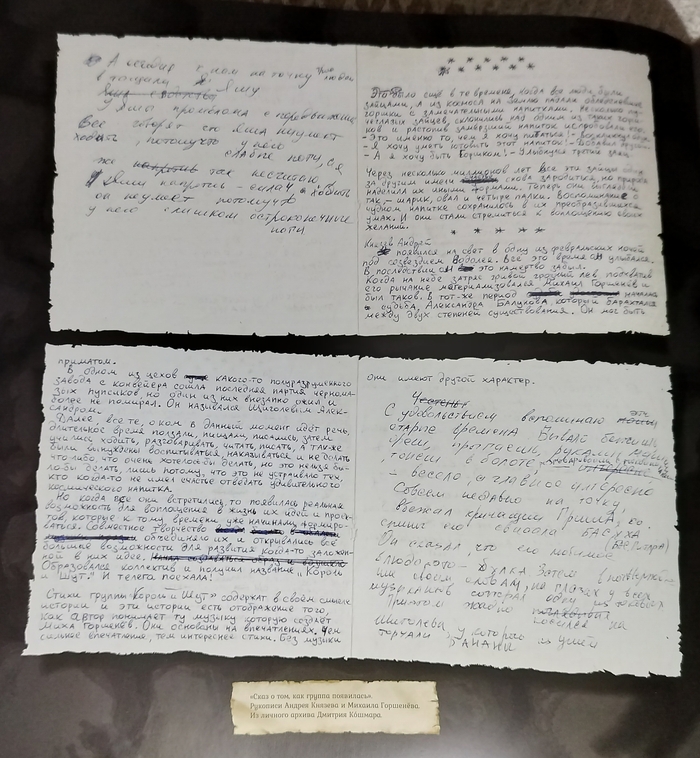 А сегодня к нам на точку
Яшу
у Яши проблема с передвижением
Все говорят що Яша неумеет
ходить, потомучто у него
слабые ноги, ся
же так несчитаю
Яши напротив - силач, а ходить
он неумеет потомучто
у него слишком остроконечные
ноги
* * * * *
* * * * * *
Это было ещё в те времена, когда все люди были
зайцами, а из космоса на Землю падали обледеневшие
горшки с замечательными напитками. Несколько
зайцев, склонились над одним из таких горш-
ков и растопив замёрзший напиток испробовали его.
- Это именно то, чем я хочу питаться! - Воскликнул один
- Я хочу уметь готовить этот напиток! - Добавил другой
- А я хочу быть Горшком! - Улыбнулся третий заяц.
Через несколько миллионов лет все эти зайцы
за другим имели снова зародиться, но природа
наделила их иными формами. Теперь они выглядели
так, - шарик, овал и четыре палки. Воспоминание о
чудном напитке сохранилось в их преобразившихся
умах. И они стали стремиться к воплощению своих
желаний.
* * * * *
Князев Андрей
появился на свет в одну из февральских ночей
под созвездием Водолея. Всё это время он улыбался.
В последствии он это намертво забыл.
Когда на небе затряс гривой грозный лев посвятив
его рычание материализовался Михаил Горшенёв и
был таков. В тот-же период начална
судьба, Александра Балунова, который барахтался
между двух степеней существования. Он мог быть
приматом.
В одном из цехов какого-то полуразрушенного
завода с конвейера сошла последняя партия чернома-
зых пупсиков, но один из них внезапно ожил и
более не помирал. Он назывался Щиголевым Алек-
сандром.
Далее, все те, о ком в данный момент идёт речь,
длительное время ползали, пищали, писались, затем
учились ходить, разговаривать, читать, писать, а также
были вынуждены воспитываться, наказываться и не делать
что-либо что очень хотелось-бы делать, но это нельзя бы-
ло-бы делать, лишь потому, что это не устраивало тех,
кто когда-то не имел счастье отведать удивительного
космического напитка.
Но когда все они встретились, то появилась реальная
возможность для воплощения в жизнь их идей и проэк-
тов, которые к тому времени уже начинали формиро-
ваться. Совместное творчество
объединяло их и открывались всё
большие возможности для развития когда-то заложен-
ной в них идеи.
Образовался коллектив и получил название „Король
и Шут." И телега поехала!
Стихи группы „Король и Шут" содержат в своём смысле
истории и эти истории есть отображение того,
как автор понимает ту музыку которую создаёт
Миха Горшенёв. Они основаны на впечатлениях. Чем
сильнее впечатления, тем интереснее стихи. Без музыки
они имеют другой характер.
С удовольствием вспоминаю эти
старые времена Бывало бежишь,
орёшь, прыгаешь, руками машешь
тонешь в болоте,
- весело, а главное интересно
Совсем недавно на точку,
вбежал кричащий Прыгма, со
спины его свисала БАСУХА
(БАС Гитара)
Он сказал что его любимое
блюдо - Булка Затем в подтвержде-
ние своим словам, на глазах у всех
музыкантов
Притом жадно косился на
Щиголева у которого из ушей
торчали БАНАНЫ
«Сказ о том, как группа появилась».
Рукописи Андрея Князева и Михаила Горшенёва.
Из личного архива Дмитрия Кошмара.